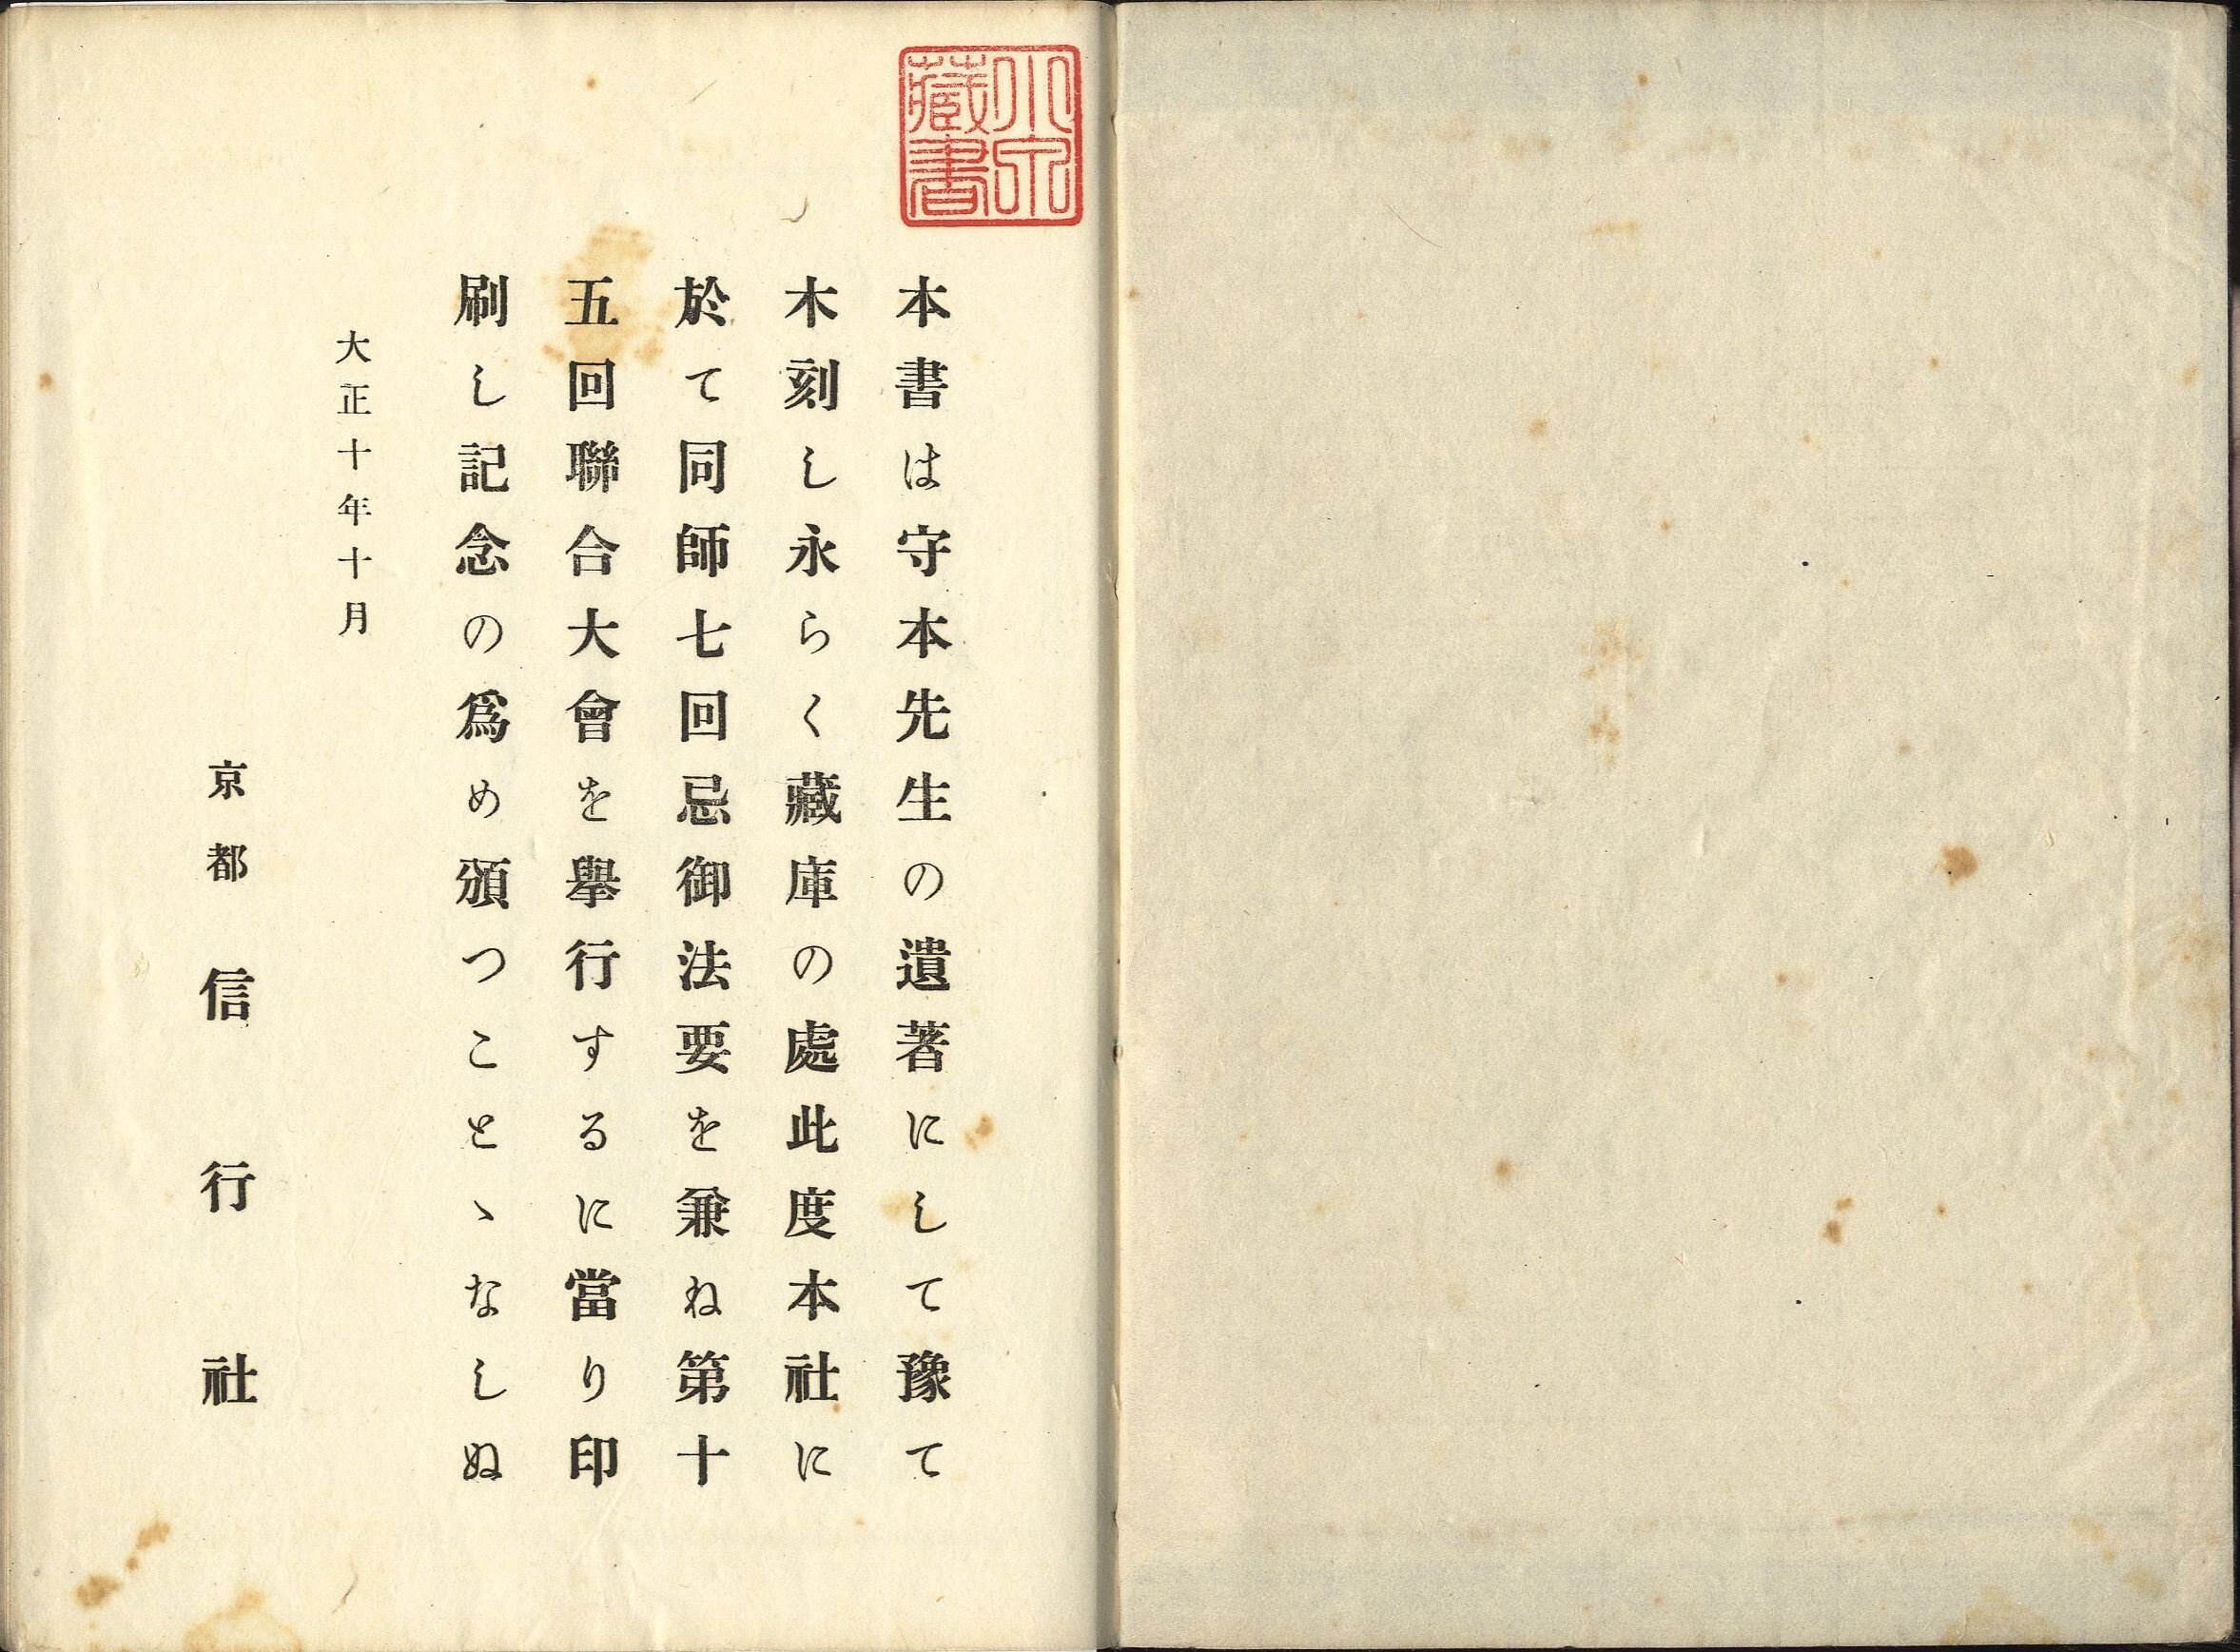 小泉
藏書
本書は守本先生の遺著にして豫て
木刻し永らく藏庫の處此度本社に
於て同師七回忌御法要を兼ね第十
五回聯合大會を擧行するに當り印
刷し記念の爲め頒つことゝなしぬ
大正十年十月
京都信行社